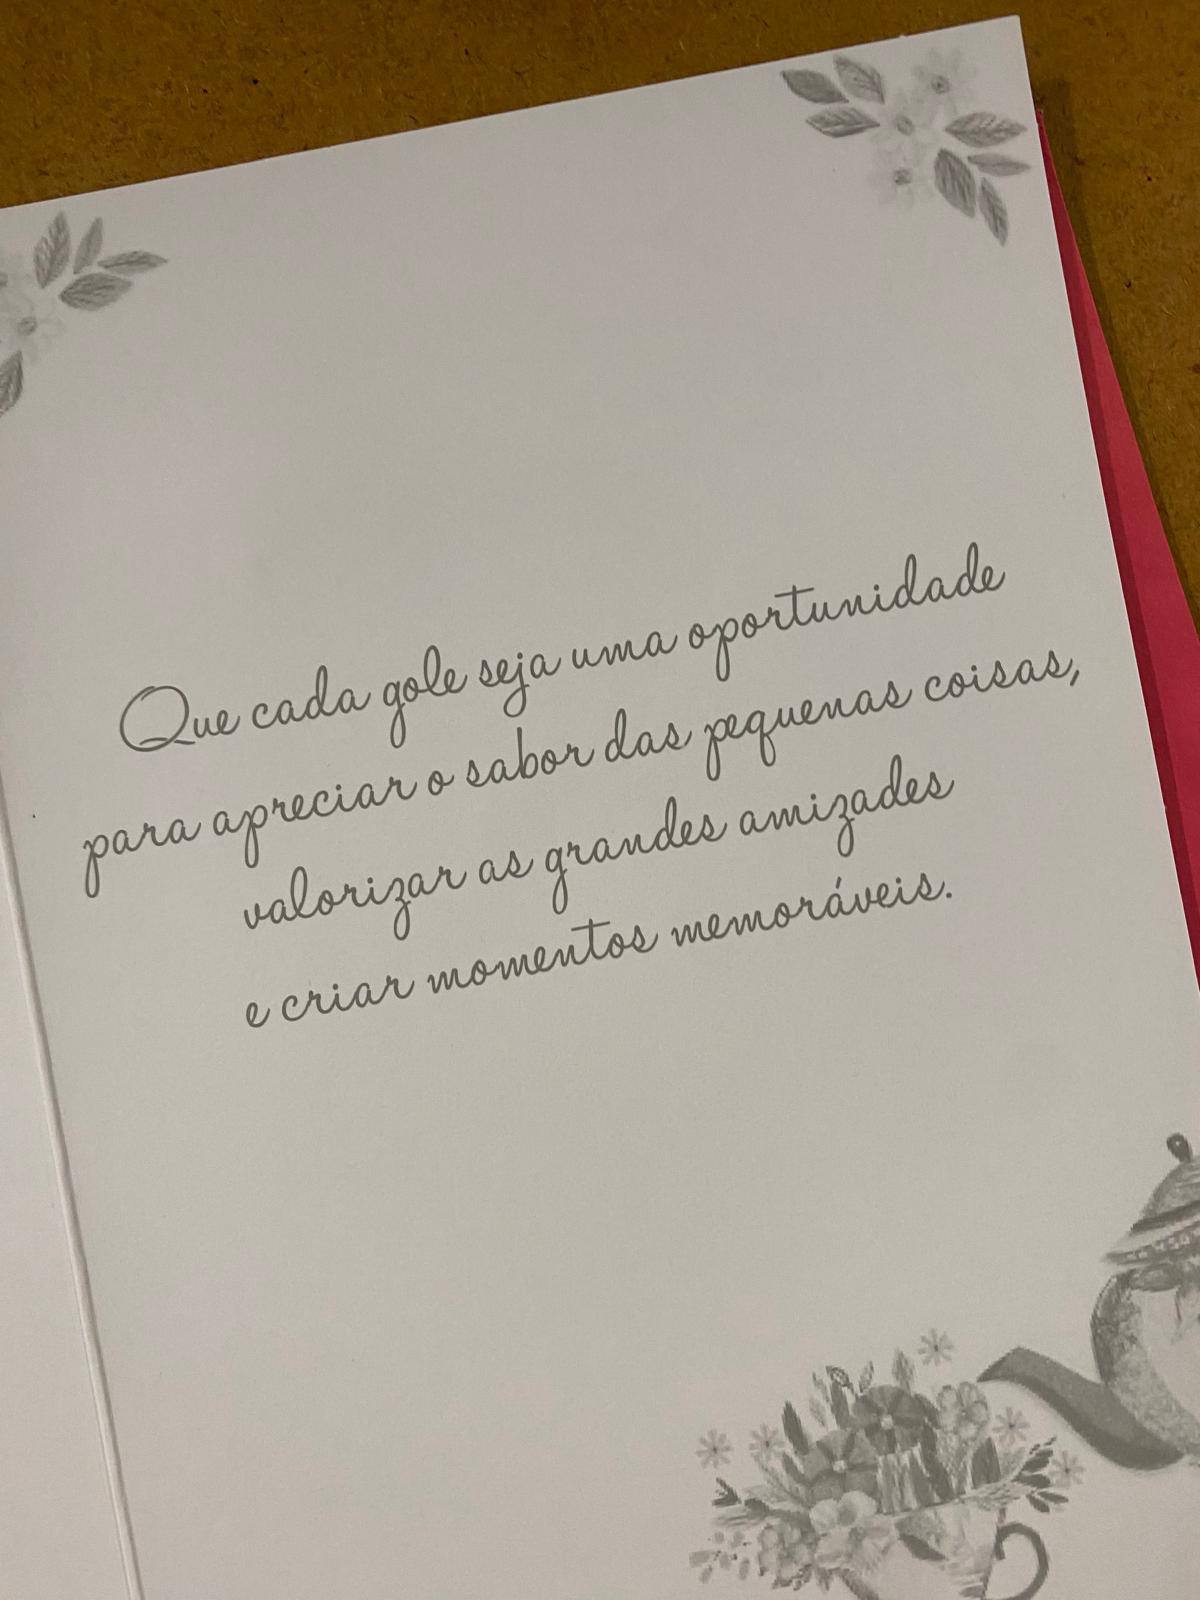 Que cada gole seja uma oportunidade
para apreciar o sabor das pequenas coisas,
valorizar as grandes amizades
e criar momentos memoráveis.